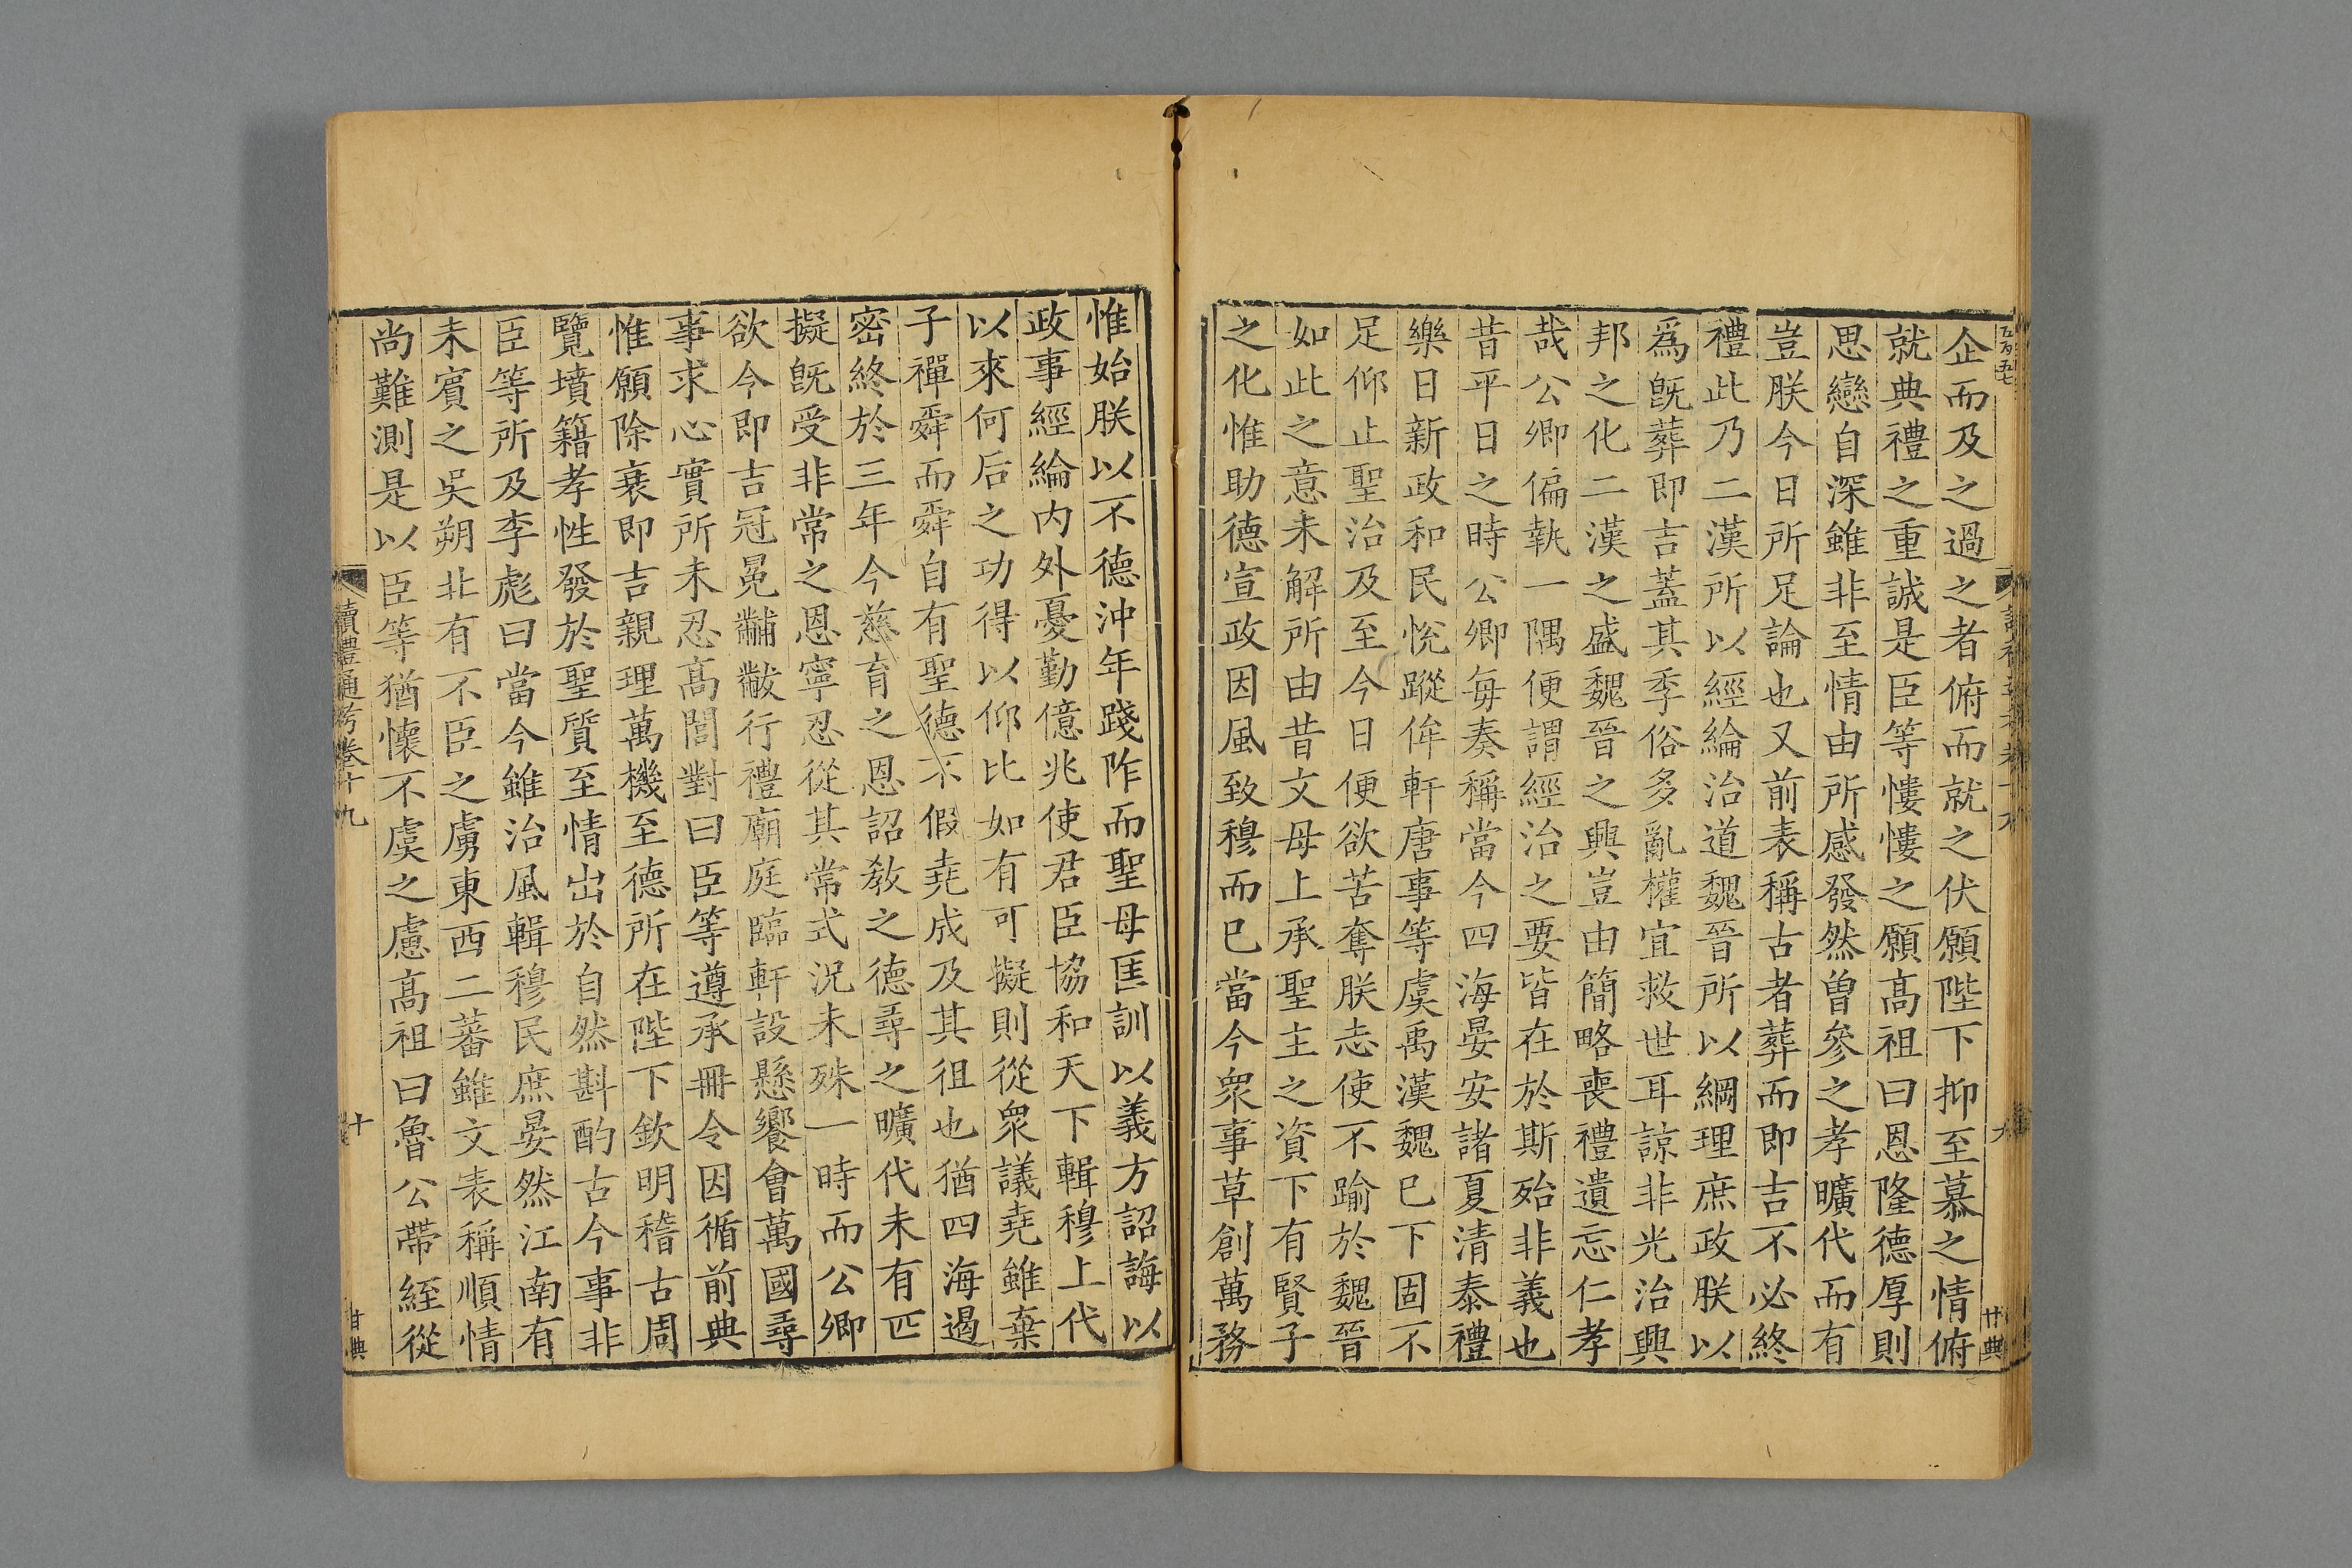 企而及之過之者俯而就之伏願陛下抑至慕之情俯
就典禮之重誠是臣等慺慺之願高祖曰恩隆德厚則
思戀自深雖非至情由所感發然曽參之孝曠代而有
豈朕今日所足論也又前表稱古者葬而即吉不必終
禮此乃二漢所以經綸治道魏晉所以綱理庶政朕以
爲旣葬即吉蓋其季俗多亂權宜救世耳諒非光治興
邦之化二漢之盛魏晉之興豈由簡略喪禮遺忘仁孝
哉公卿偏執一隅便謂經治之要皆在於斯殆非義也
昔平日之時公卿每奏稱當今四海晏安諸夏清泰禮
樂日新政和民悅蹤侔軒唐事等虞禹漢魏巳下固不
足仰止聖治及至今日便欲苦奪朕志使不踰於魏晉
如此之意未解所由昔文母上承聖主之資下有賢子
之化惟助德宣政因風致穆而巳當今衆事草創萬務
惟始朕以不德沖年踐阼而聖母匡訓以義方詔誨以
政事經綸内外憂勤億兆使君臣協和天下輯穆上代
以來何后之功得以仰比如有可擬則從衆議堯雖棄
子禪舜而舜自有聖德不假堯成及其徂也猶四海遏
密終於三年今慈育之恩詔敎之德尋之曠代未有匹
擬旣受非常之恩寧忍從其常式況未殊一時而公卿
欲今即吉冠冕黼黻行禮廟庭臨軒設懸饗會萬國尋
事求心實所未忍高閭對曰臣等遵承冊令因循前典
惟願除衰即吉親理萬機至德所在陛下欽明稽古周
覽墳籍孝性發於聖質至情出於自然斟酌古今事非
臣等所及李彪曰當今雖治風輯穆民庶晏然江南有
未賓之吳朔北有不臣之虜東西二蕃雖文表稱順情
尚難測是以臣等猶懷不虞之慮高祖曰魯公帶絰從
讀禮通考卷十九
十